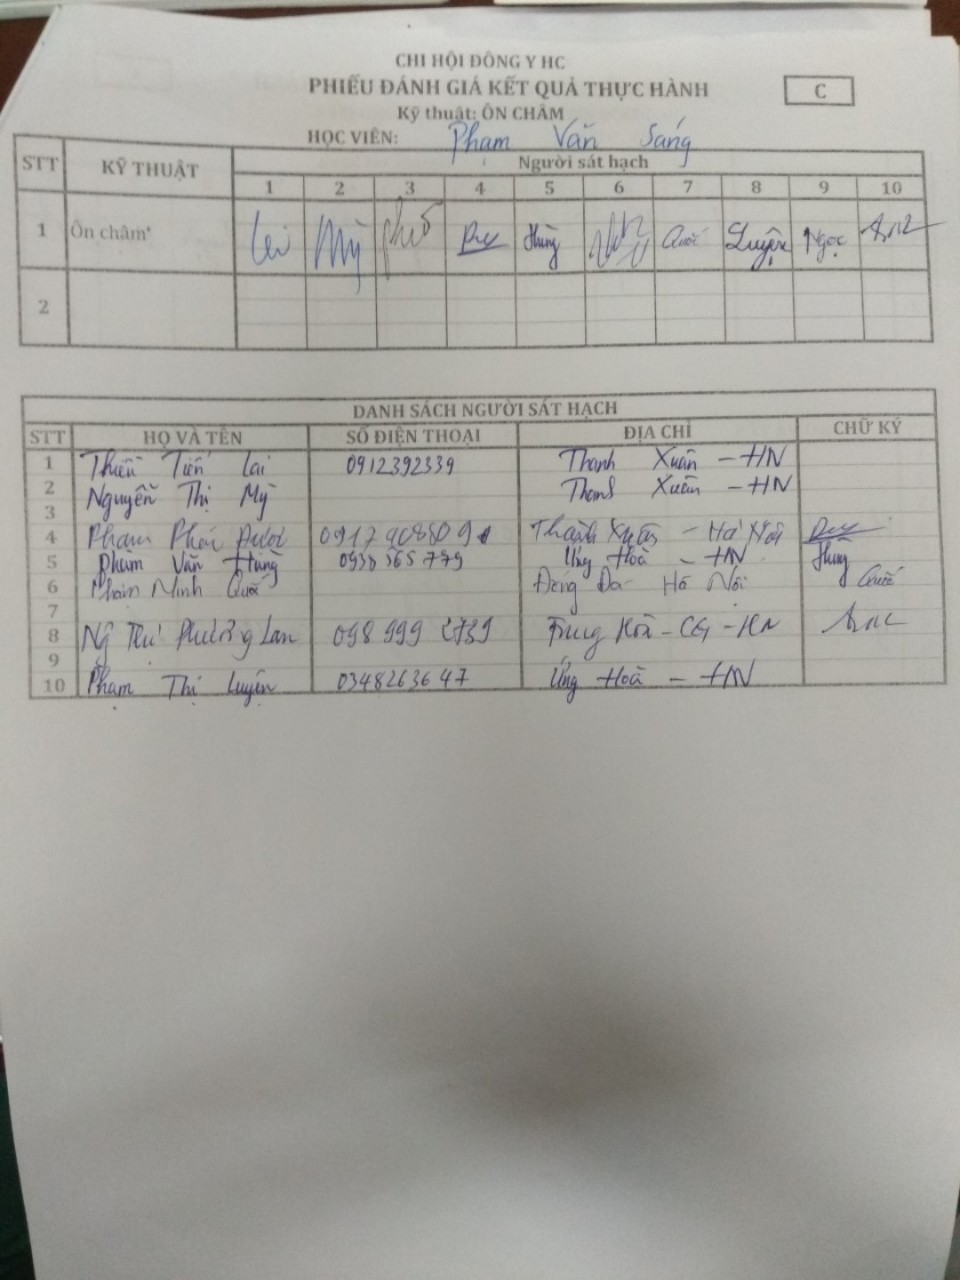 CHI HỘI ĐÔNG Y HC
PHIẾU ĐÁNH GIÁ KẾT QUẢ THỰC HÀNH
C
Kỹ thuật: ÔN CHÂM
HỌC VIÊN: Phạm Văn Sáng
STT KỸ THUẬT Người sát hạch
1 2 3 4 5 6 7 8 9 10
1 Ôn châm Lai Mỹ Duy Hùng Quốc Luyện Ngọc
2
DANH SÁCH NGƯỜI SÁT HẠCH
STT HỌ VÀ TÊN SỐ ĐIỆN THOẠI ĐỊA CHỈ CHỮ KÝ
1 Thiều Tiến Lai 0912392339 Thanh Xuân - HN
2 Nguyễn Thị Mỹ Thanh Xuân - HN
3
4 Phạm Thanh Xuân - Hà Nội
5 Phạm Văn Hùng 0938565779 Ứng Hoà - HN Hùng
6 Phạm Ninh Quốc Đống Đa Hà Nội Quốc
7
8 Ng Thị Phương Lan 098 999 2739 Trung Hoà - CG - HN
9
10 Phạm Thị Luyện 0348263647 Ứng Hoà - HN